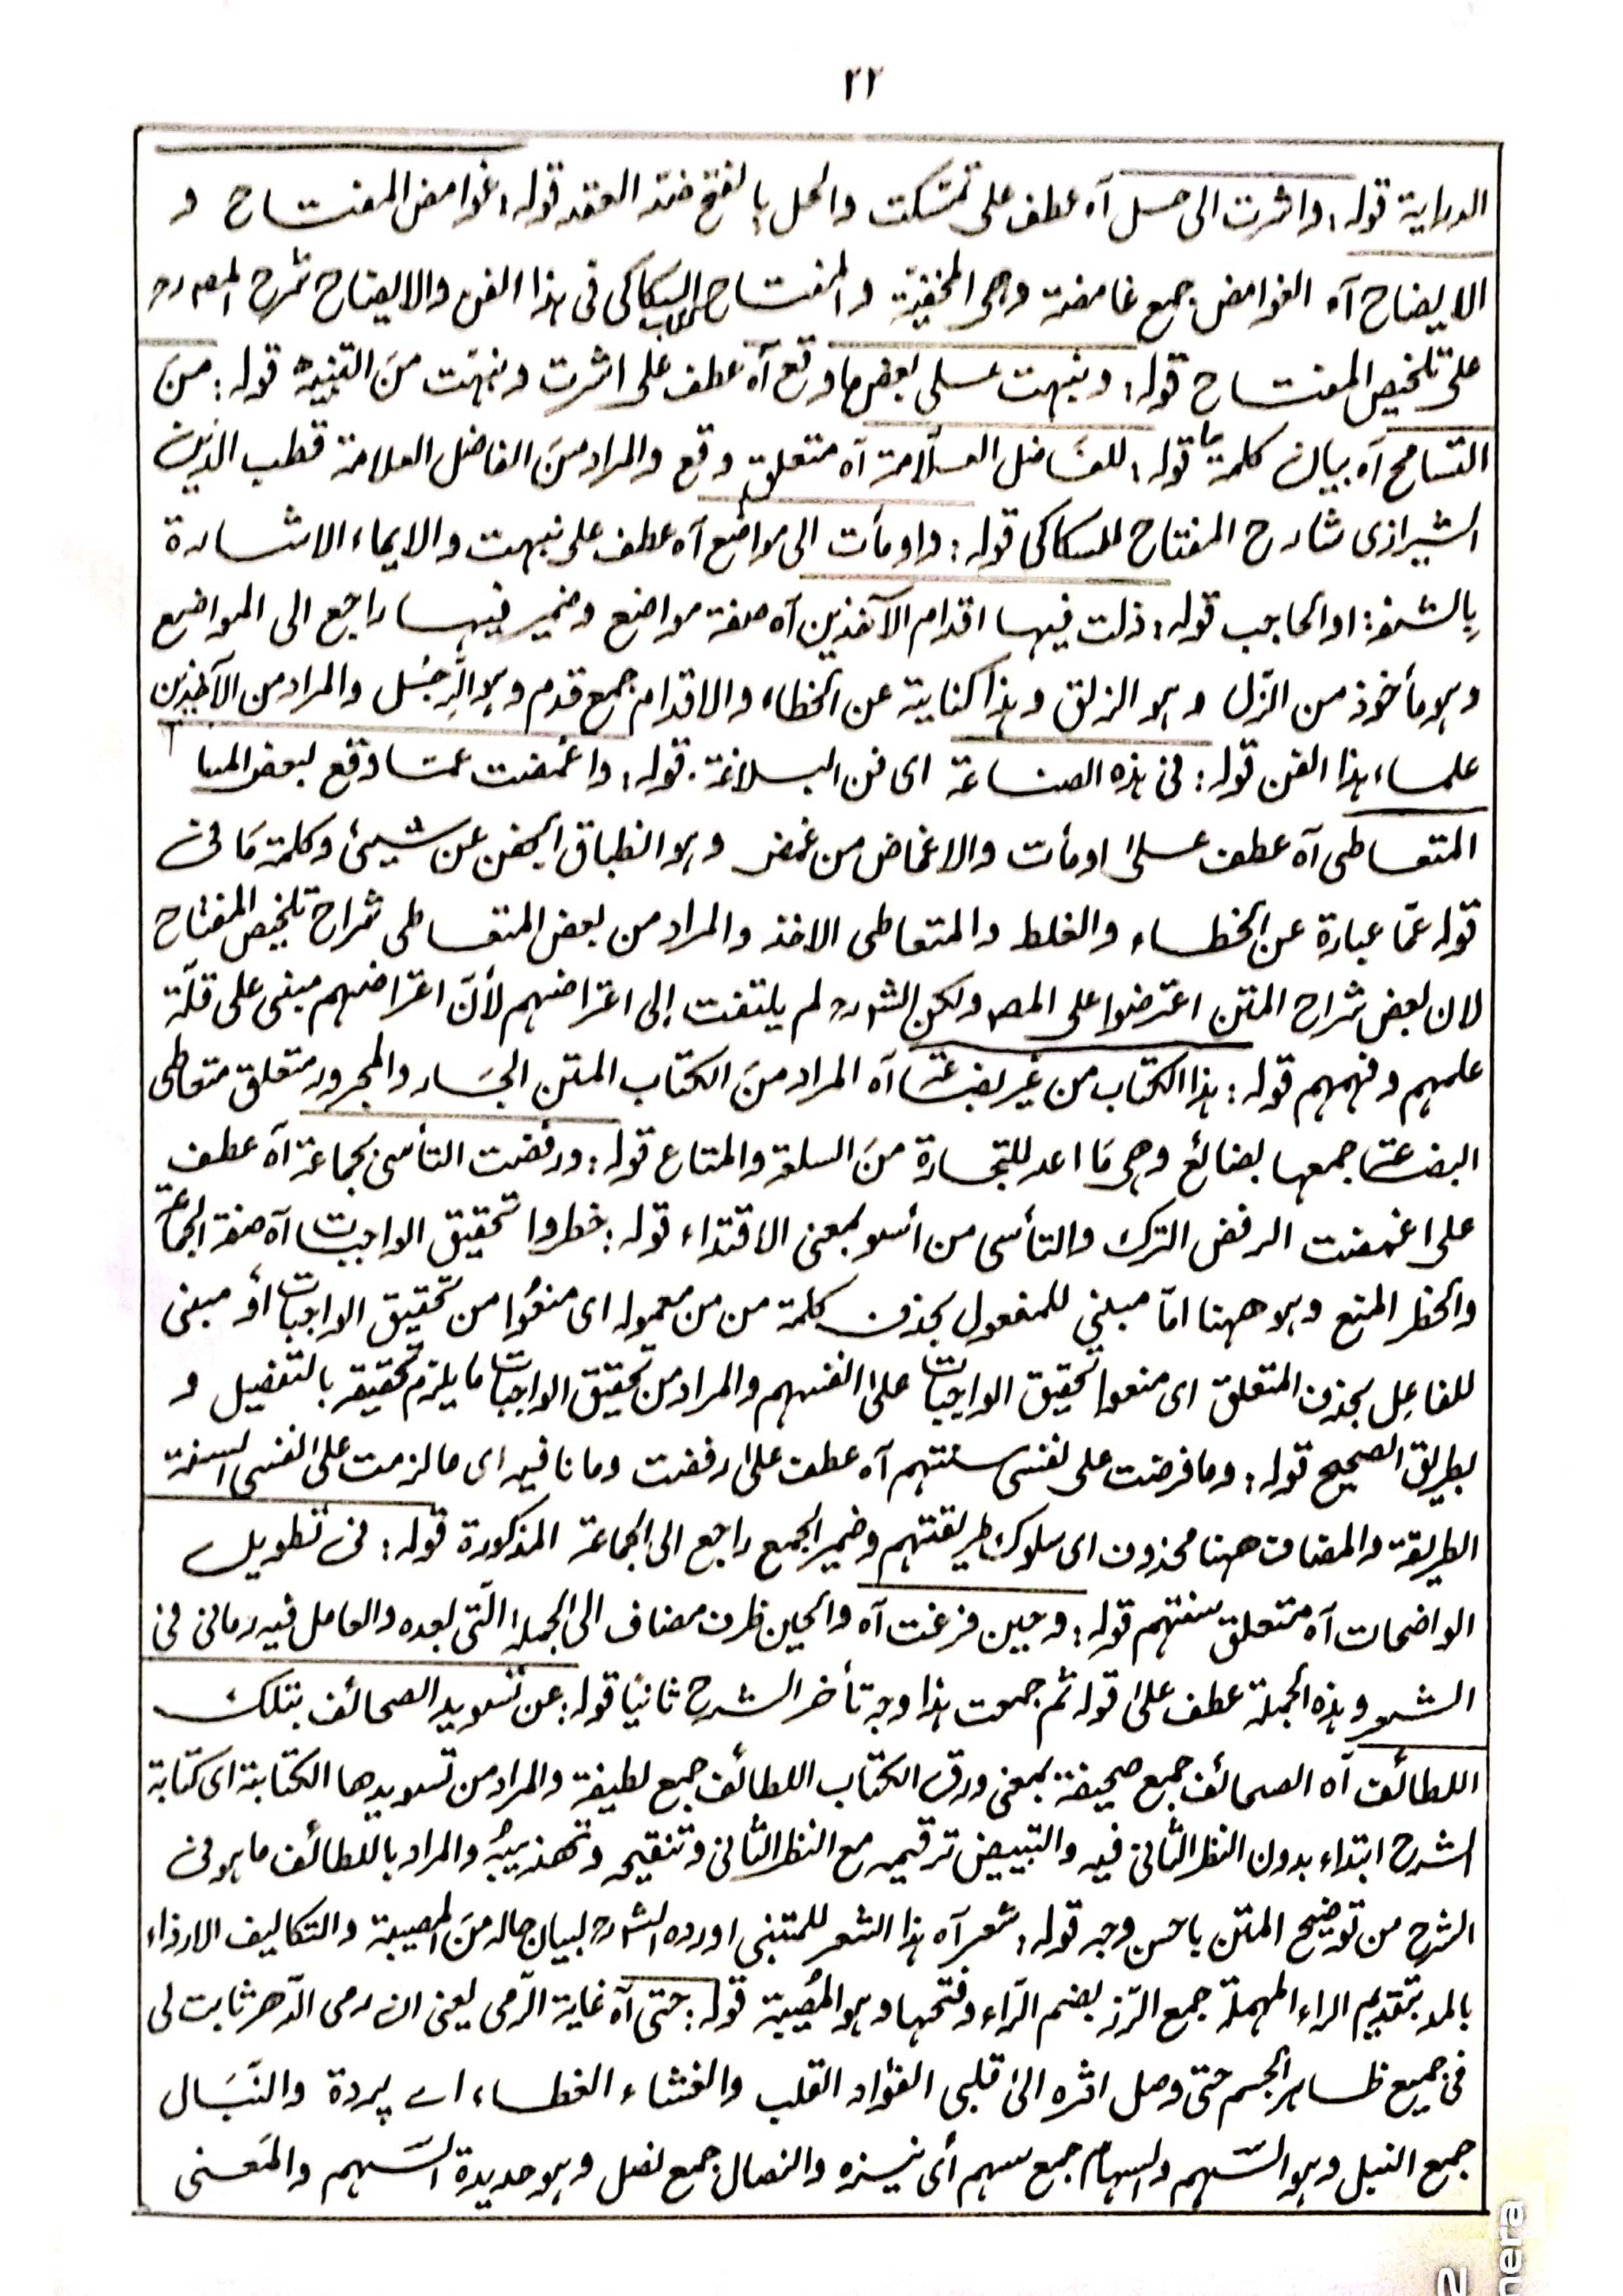 ٢٢
الدراية قوله: واشرت الى حل آه عطف على تمسكت والحل بالفتح ضد العقد قوله: غوامض المفتاح و
الايضاح آه الغوامض جمع غامضة وهى المخفية والمفتاح للسكاكى فى هذا الفن والايضاح شرح المصـ رحـ
على تلخيص المفتاح قوله: ونبهت على بعض ما وقع آه عطف على اشرت ونبهت من التنبيه قوله: من
التسامح آه بيان كلمة ما قوله: للفاضل العلامة آه متعلق وقع والمراد من الفاضل العلامة قطب الدين
الشيرازى شارح المفتاح للسكاكى قوله: واومأت الى مواضع آه عطف على نبهت والايماء الاشارة
بالشفة او الحاجب قوله: زلت فيها اقدام الآخذين آه صفة مواضع وضمير فيها راجع الى المواضع
وهو مأخوذ من الزل وهو الزلق وهذا كناية عن الخطاء والاقدام جمع قدم وهو الرِجْل والمراد من الآخذين
علماء هذا الفن قوله: فى هذه الصناعة اى فن البلاغة. قوله: واغمضت عما وقع لبعض
المتعاطى آه عطف على اومأت والاغماض من غمض وهو انطباق الجفن عن شيئ وكلمة مَا فى
قوله عمّا عبارة عن الخطاء والغلط والمتعاطى الاخذ والمراد من بعض المتعاطى شراح تلخيص المفتاح
لان بعض شراح المتن اعترضوا على المصـ ولكن الشـ رحـ لم يلتفت إلى اعتراضهم لأنّ اعتراضهم مبنى على قلّة
علمهم وفهمهم قوله: هذا الكتاب من غير بضاعة آه المراد من الكتاب المتن الجار والمجرور متعلق متعاطى
البضاعة جمعها بضائع وهى مَا اعد للتجارة منَ السلعة والمتاع قوله: ورفضت التأسى بجماعة آه عطف
على اغمضت الرفض الترك والتأسى من أسو بمعنى الاقتداء قوله: حظروا تحقيق الواجبات آه صفة الجماعة
والحظر المنع وهو ههنا امّا مبني للمفعول بحذف كلمة من من معموله اى منعُوا من تحقيق الواجبات أو مبنى
للفاعِل بحذف المتعلق اى منعوا تحقيق الواجبات على انفسهم والمراد من تحقيق الواجبات ما يلزم تحقيقه بالتفصيل و
بطريق الصحيح قوله: وما فرضت على نفسى سنتهم آه عطف على رفضت وما نافيه اى ما لزمت على نفسى السنة
الطريقة والمضاف ههنا محذوف اى سلوك طريقتهم وضمير الجمع راجع الى الجماعة المذكورة قوله: فى تطويل
الواضحات آه متعلق سنتهم قوله: وحين فرغت آه والحين ظرف مضاف الى الجملة الّتى بعده والعامل فيه رمانى فى
الشعر وهذه الجملة عطف على قوله ثم جمعت هذا وجه تأخر الشرح ثانيًا قوله: عن تسويد الصحائف بتلك
اللطائف آه الصحائف جمع صحيفة بمعنى ورق الكتاب اللطائف جمع لطيفة والمراد من تسويدها الكتابة اى كتابة
الشرح ابتداء بدون النظر الثانى فيه والتبييض ترقيمه مع النظر الثانى وتنقيحه وتهذيبهُ والمراد باللطائف ما هو فى
الشرح من توضيح المتن باحسن وجه قوله: شعر آه هذا الشعر للمتنبى اورده الشـ رحـ لبيان حاله منَ المصيبة والتكاليف الارزاء
بالمد بتقديم الراء المهملة جمع الرّزء بضم الرّاء وفتحها وهو المُصيبة قوله: حتى آه غاية الرّمى يعنى ان رمى الدّهر ثابت لى
فى جميع ظاهر الجسم حتى وصل اثره الى قلبى الفؤاد القلب والغشاء الغطاء اے پردة والنبَال
جمع النبل وهو السّهم والسهام جمع سهم أى نيزه والنصال جمع نصل وهو حديدة السّهم والمَعنى